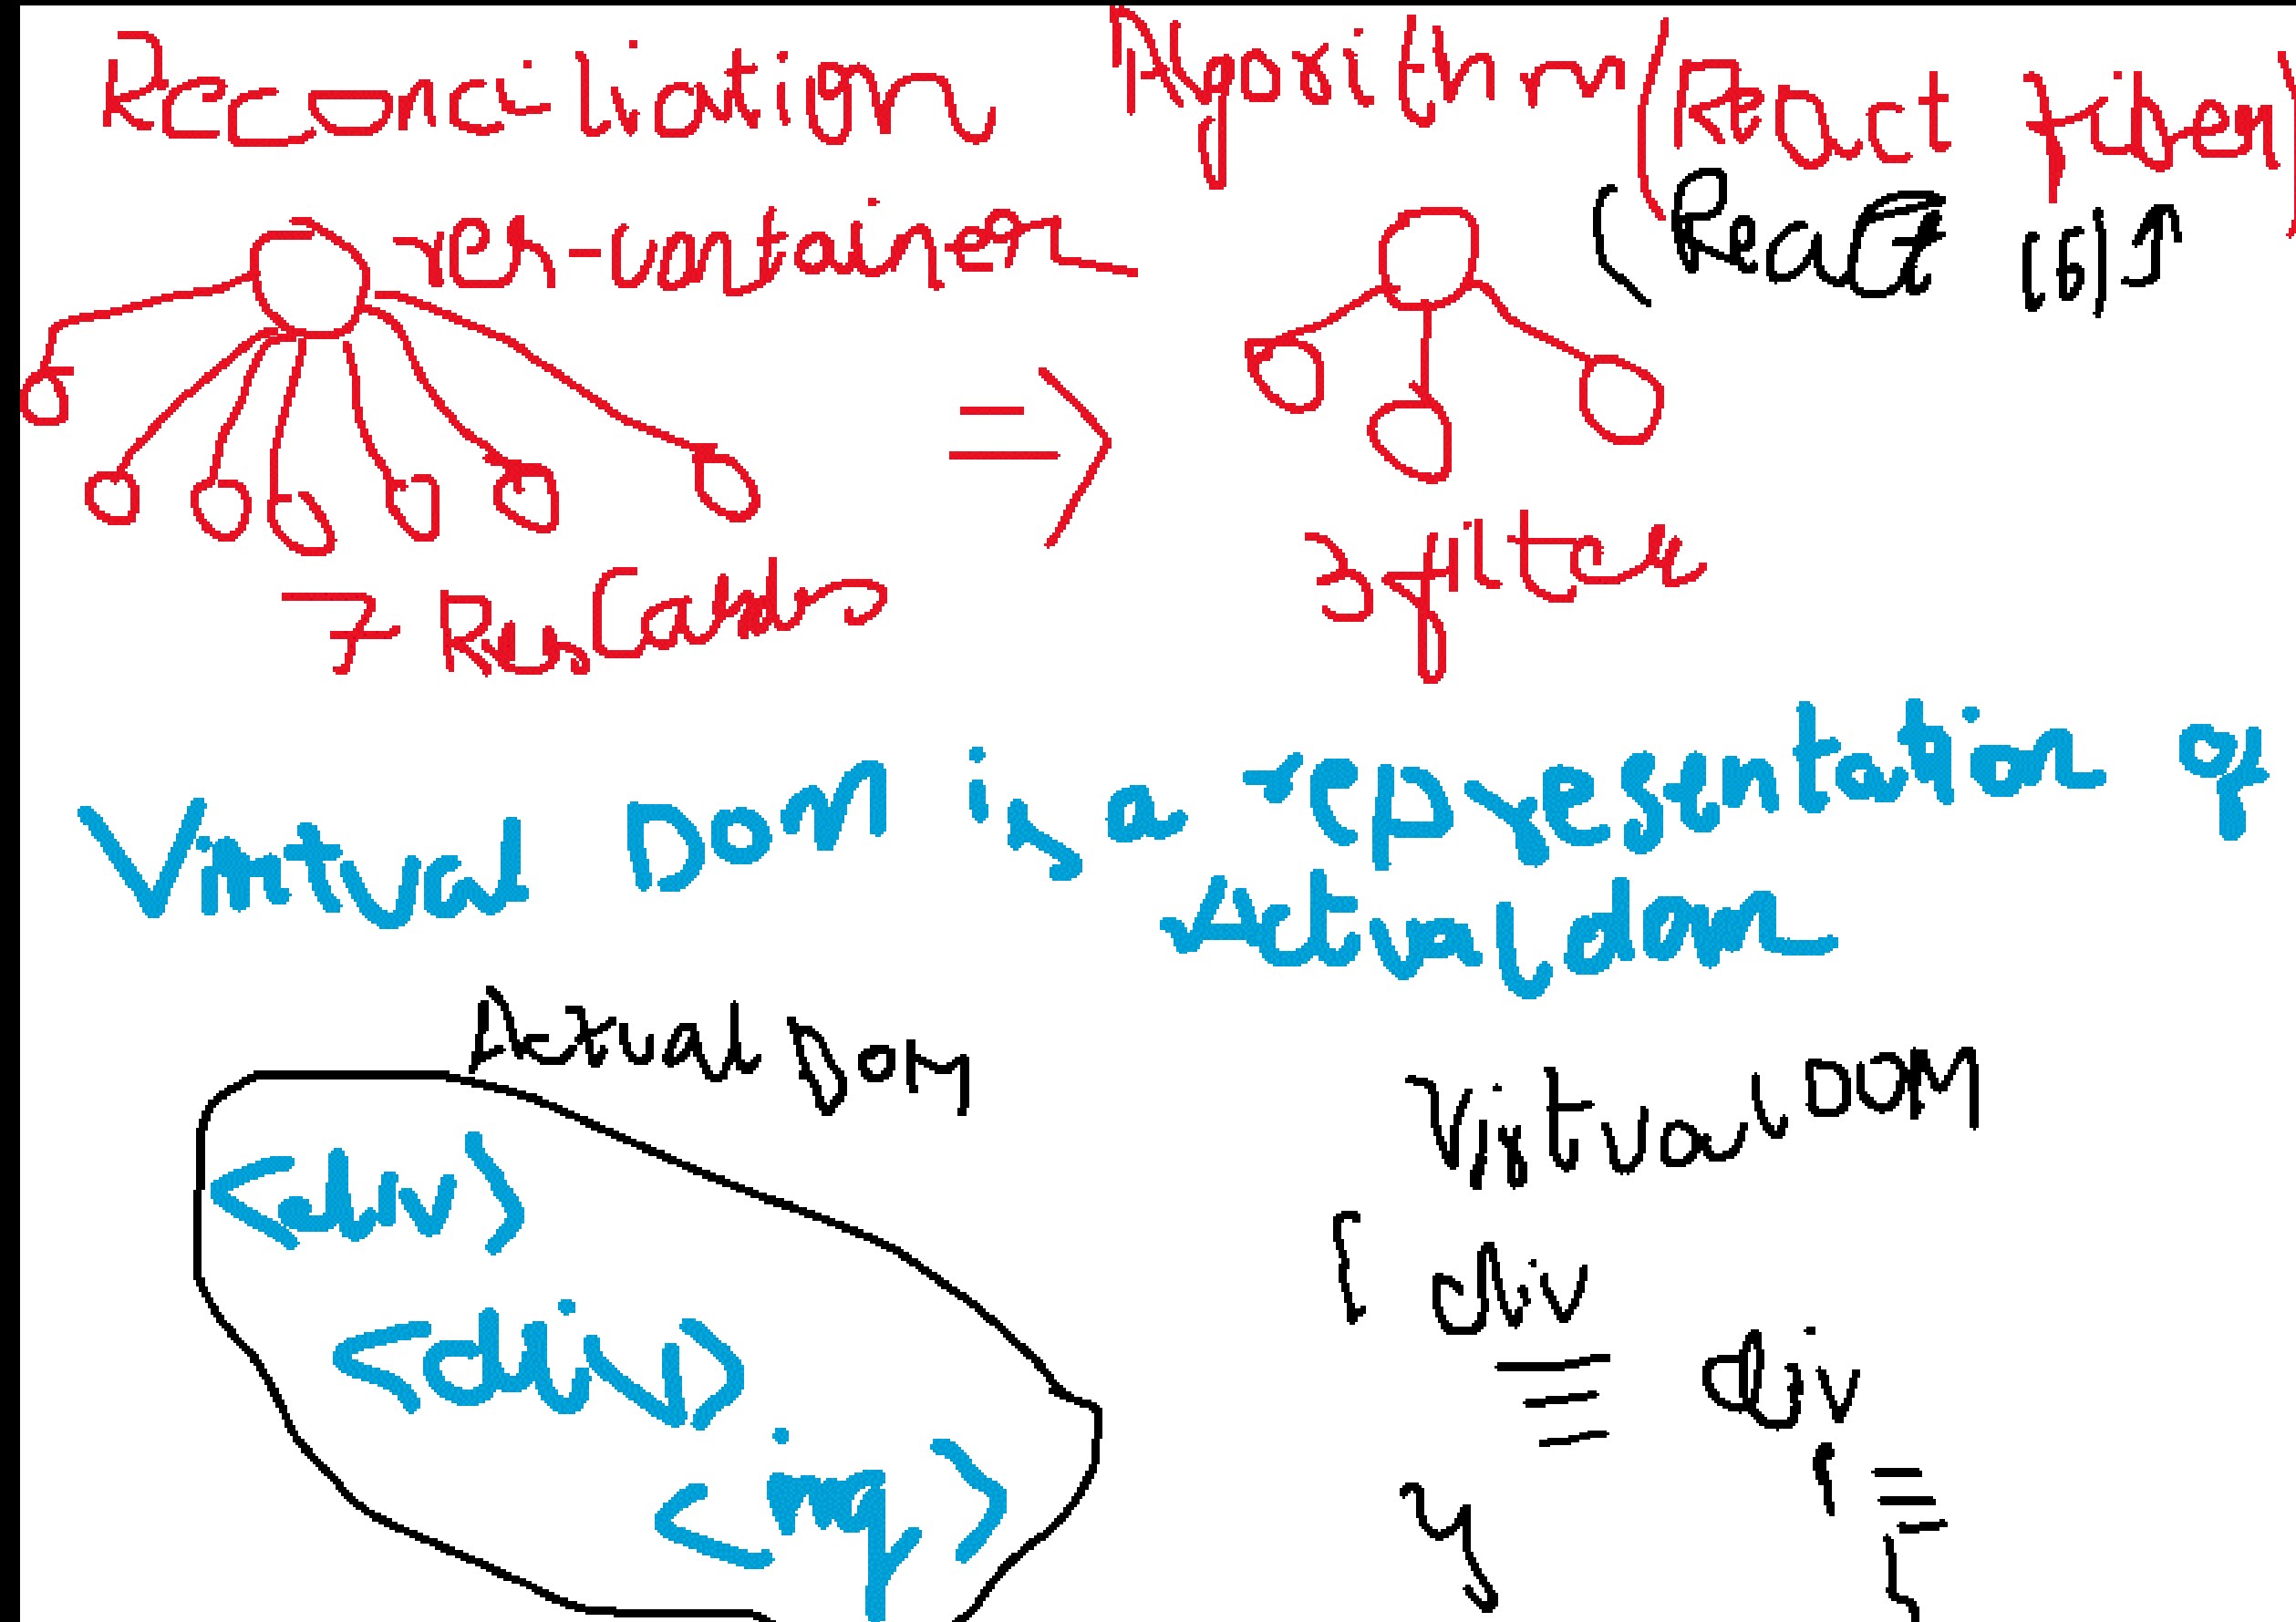 Reconciliation Algorithm (React Fiber)
(React 16)↑
res-container
7 ResCards
3 filter
Virtual DOM is a representation of
Actual dom
Actual DOM
Virtual DOM
<div>
<div>
<img>
{ div
div
{
}
}